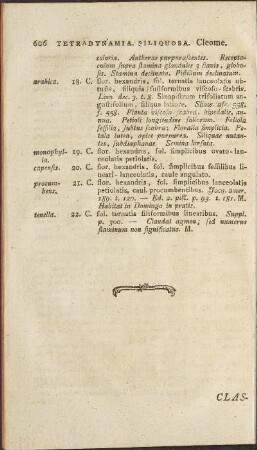 606 TETRADYNAMIA. SILIQUOSA. Cleome.
coloris. Antherae purpurascentes. Recepta-
culum supra stamina glandulis 3 sinis, globo-
sis. Stamina declinata. Pistillum declinatum.
arabica. 18. C. flor. hexandris, fol. ternatis lanceolatis ob-
tusis, siliquis fusiformibus viscoso-scabris.
Linn dec. 3. t. 8. Sinapistrum trifolium
angustifolium, siliqua latiore.
f. 558. Planta viscoso-scabra, bipedalis, an-
nua. Petioli longitudine foliorum. Foliola
sessilia, subtus scabra; Floralia simplicia. Pe-
tala lutea, apice purpurea. Siliquae nutan-
tes, subdiaphanae. Semina hirsuta.
monophyl-
la. 19. C. flor. hexandris, fol. simplicibus ovato-lan-
ceolatis petiolatis.
capensis. 20. C. flor. hexandris, fol. simplicibus sessilibus li-
neari-lanceolatis, caule angulato.
procum-
bens. 21. C. flor. hexandris, fol. simplicibus lanceolatis
petiolatis, caul. procumbentibus. Jacq. amer.
189. t. 120. — Ed. 2. pict. p. 93. t. 181. M.
Habitat in Domingo in pratis.
tenella. 22. C. fol. ternatis filiformibus linearibus. Suppl.
p. 300. — Claudat agmen; sed numerus
staminum non significatus. M.
CLAS-